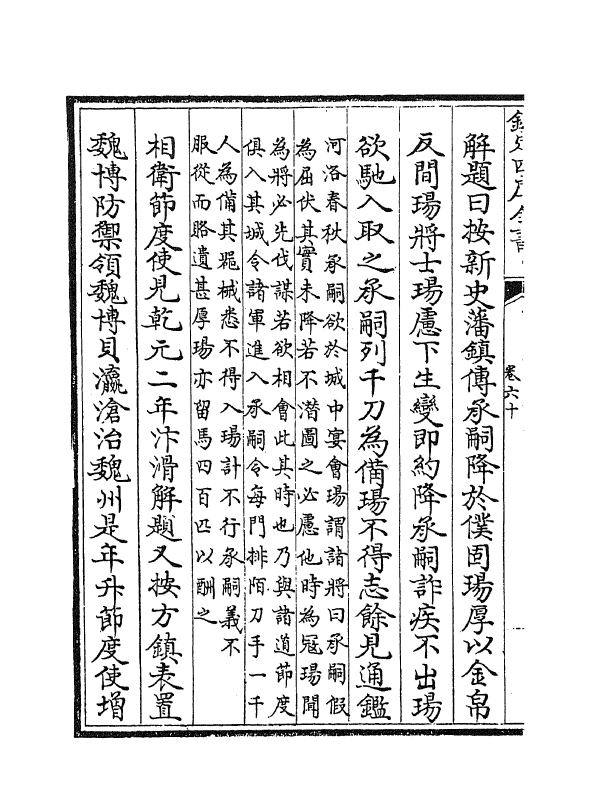 欽定四庫全書
卷六十
解題曰按新史藩鎮傳承嗣降於僕固瑒厚以金帛
反間瑒將士瑒慮下生變即約降承嗣詐疾不出瑒
欲馳入取之承嗣列千刀為備瑒不得志餘見通鑑
河洛春秋承嗣欲於城中宴會瑒謂諸將曰承嗣假
為屈伏其實未降若不潛圖之必慮他時為冦瑒聞
為將必先伐謀若欲相會此其時也乃與諸道節度
俱入其城令諸軍進入承嗣令每門排陌刀手一千
人為備其器械悉不得入瑒計不行承嗣義不
服從而賂遺甚厚瑒亦留馬四百匹以酬之
相衛節度使見乾元二年汴滑解題又按方鎮表置
魏博防禦領魏博貝瀛滄治魏州是年升節度使增